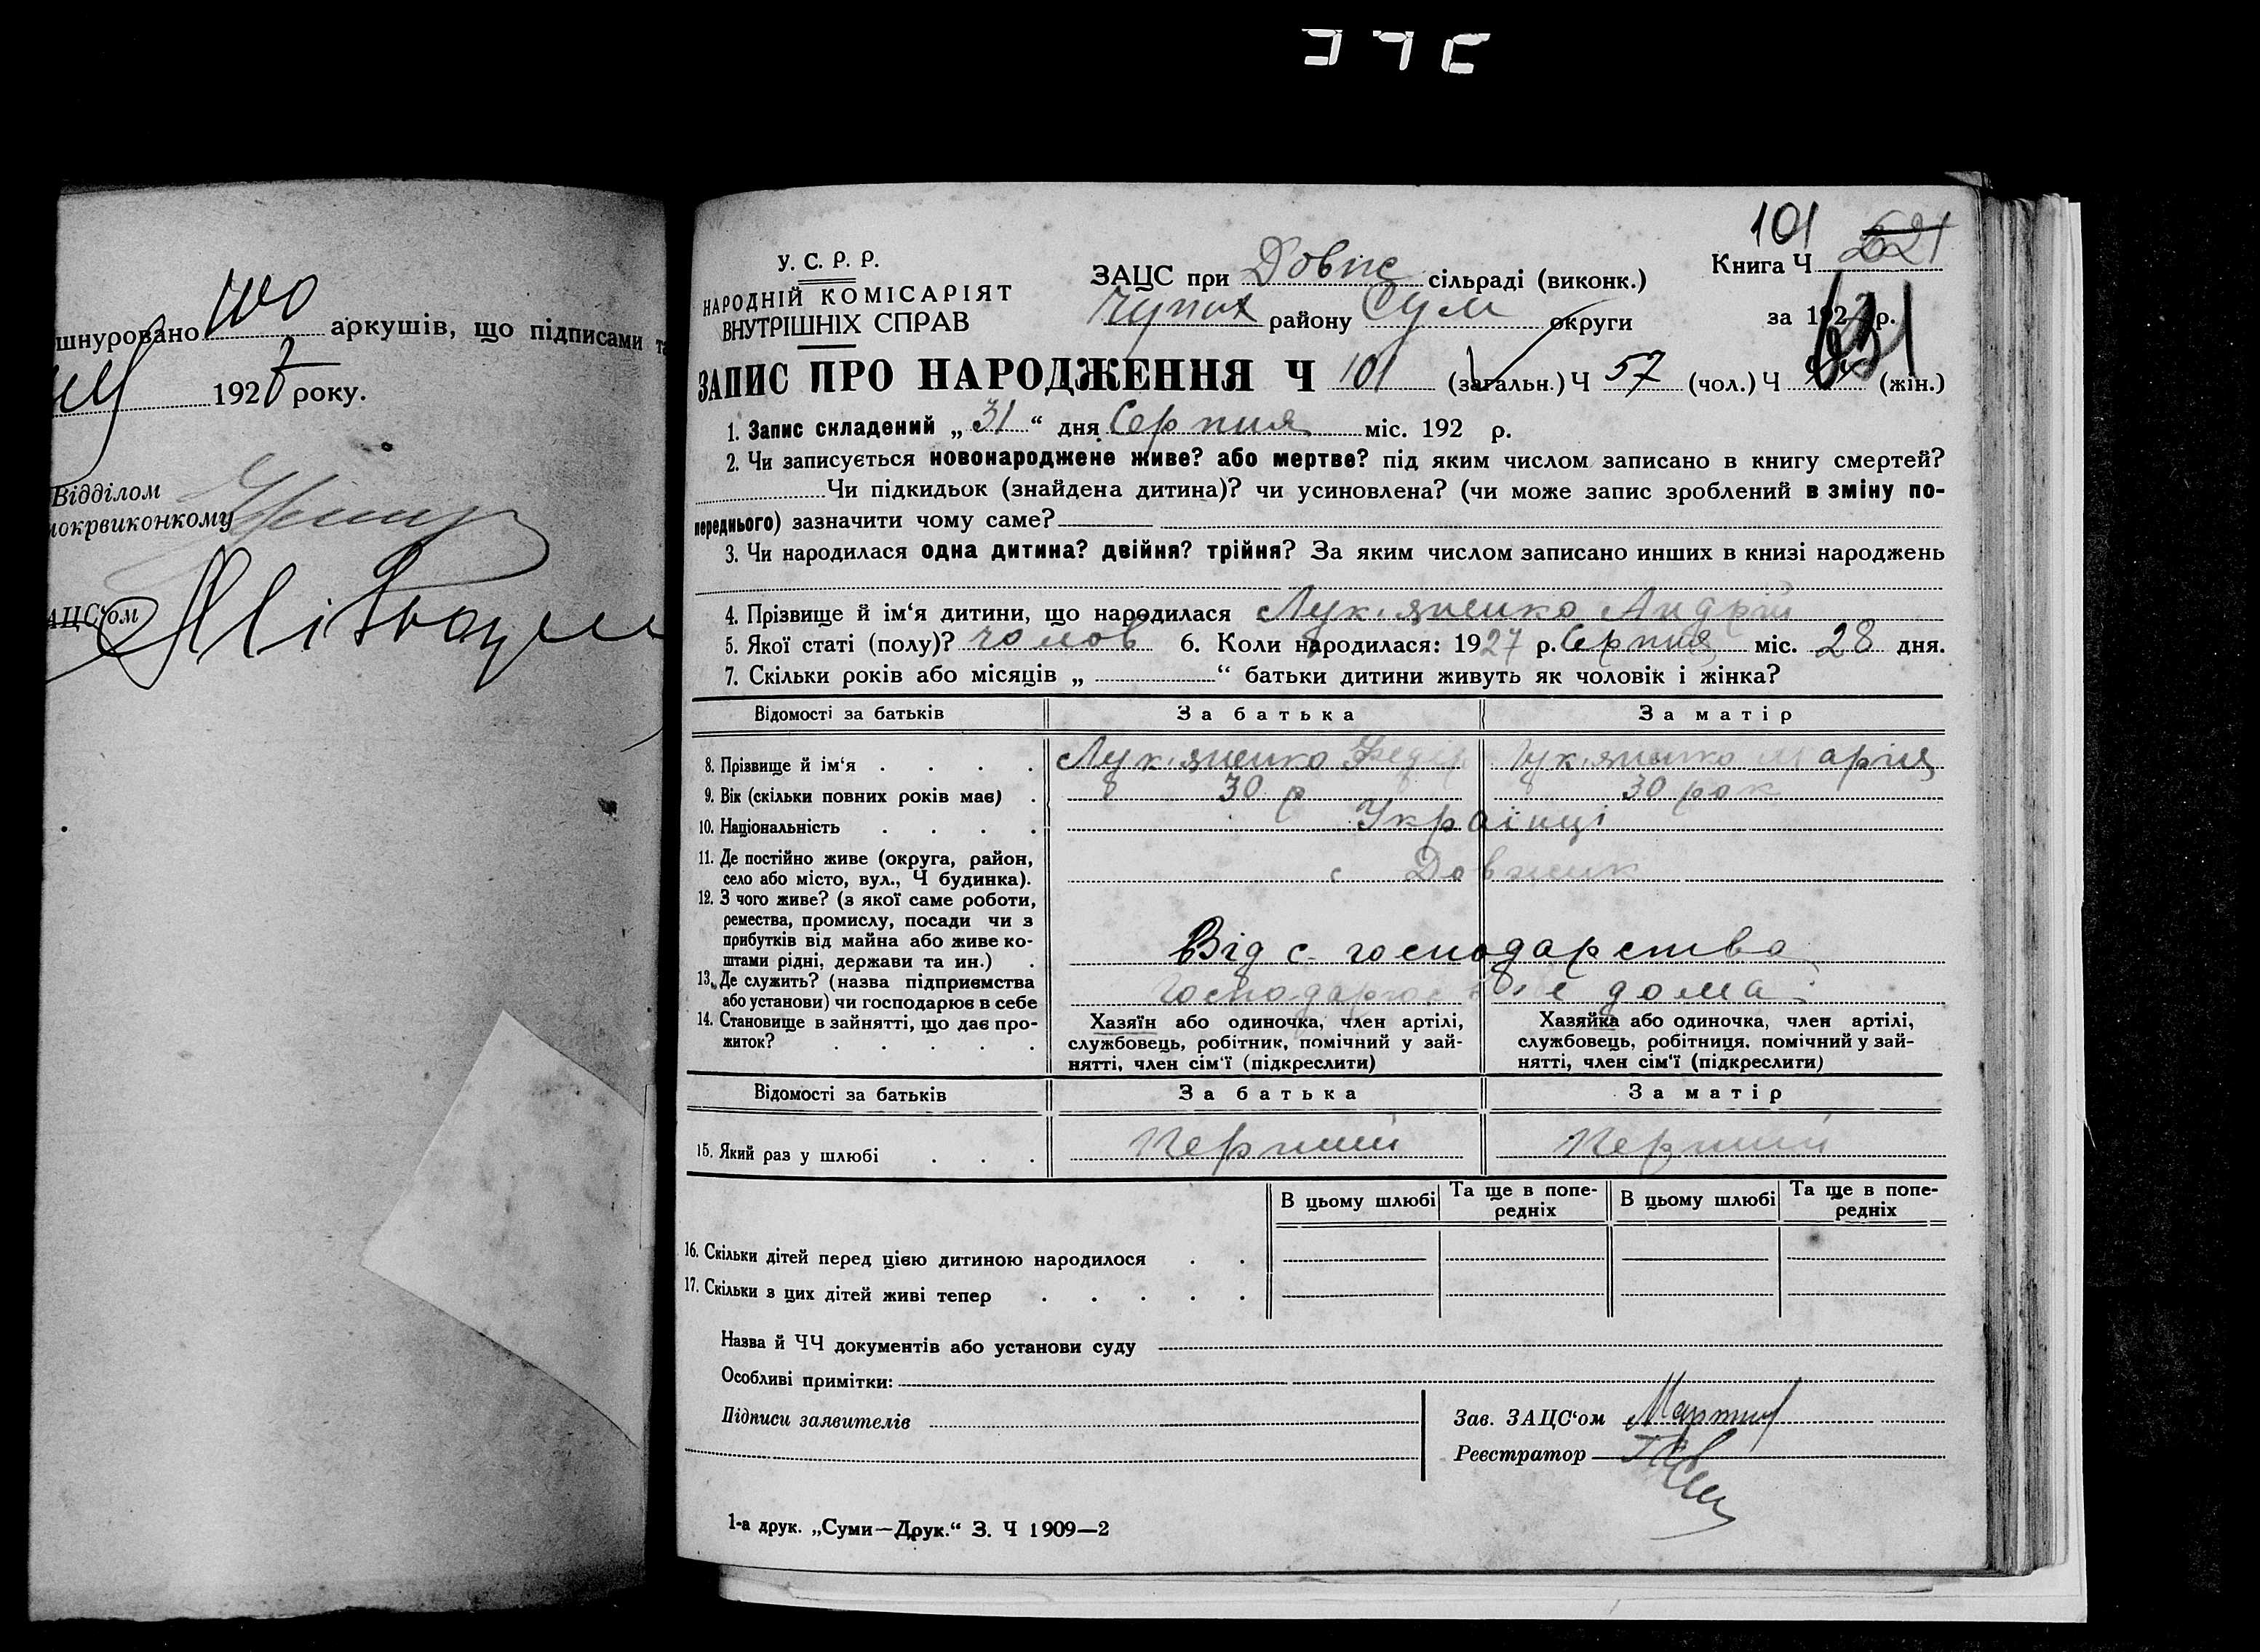 шнуровано 100 аркушів, що підписами та
1927 року.
Відділом
мокрвиконкому
АЦС'ом
101 621
631
У. С. Р. Р.
НАРОДНІЙ КОМІСАРІЯТ
ВНУТРІШНІХ СПРАВ
ЗАЦС при Довж сільраді (виконк.)
Чупах району Сум округи
Книга Ч
за 1927 р.
ЗАПИС ПРО НАРОДЖЕННЯ Ч 101 (загальн.) Ч 57 (чол.) Ч (жін.)
1. Запис складений „31“ дня Серпня міс. 192 р.
2. Чи записується новонароджене живе? або мертве? під яким числом записано в книгу смертей?
Чи підкидьок (знайдена дитина)? чи усиновлена? (чи може запис зроблений в зміну по-
переднього) зазначити чому саме?
3. Чи народилася одна дитина? двійня? трійня? За яким числом записано инших в книзі народжень
4. Прізвище й ім‘я дитини, що народилася Лук‘яненко Андрій
5. Якої статі (полу)? чолов 6. Коли народилася: 1927 р. Серпня міс. 28 дня.
7. Скільки років або місяців „ “ батьки дитини живуть як чоловік і жінка?
Відомості за батьків За батька За матір
8. Прізвище й ім‘я Лук‘яненко Федір Лук‘яненко Марія
9. Вік (скільки повних років має) 30 р 30 рок
10. Національність Українці
11. Де постійно живе (округа, район,
село або місто, вул., Ч будинка). с Довжик
12. З чого живе? (з якої саме роботи,
ремества, промислу, посади чи з
прибутків від майна або живе ко-
штами рідні, держави та ин.) Від с. господарства
13. Де служить? (назва підприємства
або установи) чи господарює в себе Господарює в себе дома
14. Становище в зайнятті, що дає про-
житок?
Хазяїн або одиночка, член артілі,
службовець, робітник, помічний у зай-
нятті, член сім‘ї (підкреслити)
Хазяйка або одиночка, член артілі,
службовець, робітниця, помічний у зай-
нятті, член сім‘ї (підкреслити)
Відомості за батьків За батька За матір
15. Який раз у шлюбі Перший Перший
В цьому шлюбі Та ще в попе-
редніх В цьому шлюбі Та ще в попе-
редніх
16. Скільки дітей перед цією дитиною народилося
17. Скільки з цих дітей живі тепер
Назва й ЧЧ документів або установи суду
Особливі примітки:
Підписи заявителів
Зав. ЗАЦС‘ом
Реєстратор
1-а друк. „Суми—Друк.“ З. Ч 1909—2